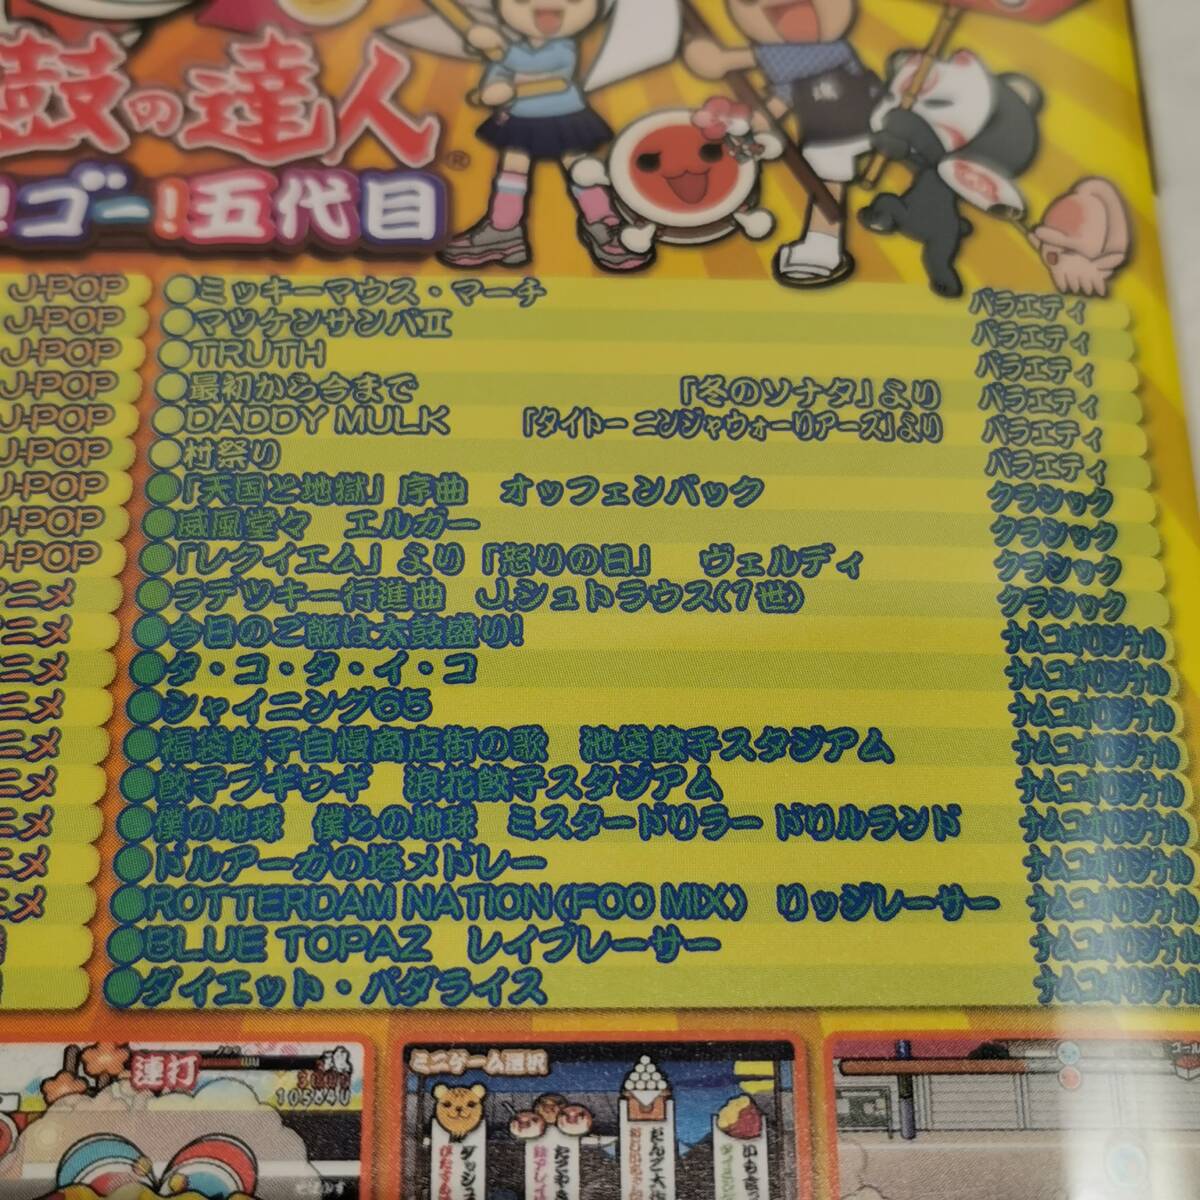 鼓の達人®
!ゴー!五代目
J-POP
J-POP
J-POP
J-POP
J-POP
J-POP
J-POP
J-POP
J-POP
●ミッキーマウス・マーチ バラエティ
●マツケンサンバⅡ バラエティ
●TRUTH バラエティ
●最初から今まで 「冬のソナタ」より バラエティ
●DADDY MULK 「タイトー ニンジャウォーリアーズ」より バラエティ
●村祭り バラエティ
●「天国と地獄」序曲 オッフェンバック クラシック
●威風堂々 エルガー クラシック
●「レクイエム」より「怒りの日」 ヴェルディ クラシック
●ラデツキー行進曲 J.シュトラウス(1世) クラシック
●今日のご飯は太鼓盛り! ナムコオリジナル
●タ・コ・タ・イ・コ ナムコオリジナル
●シャイニング65 ナムコオリジナル
●福袋餃子自慢商店街の歌 池袋餃子スタジアム ナムコオリジナル
●餃子ブギウギ 浪花餃子スタジアム ナムコオリジナル
●僕の地球 僕らの地球 ミスタードリラー ドリルランド ナムコオリジナル
●ドルアーガの塔メドレー ナムコオリジナル
●ROTTERDAM NATION(FOO MIX) リッジレーサー ナムコオリジナル
●BLUE TOPAZ レイブレーサー ナムコオリジナル
●ダイエット・パダライス ナムコオリジナル
連打
魂
105840
ミニゲーム選択